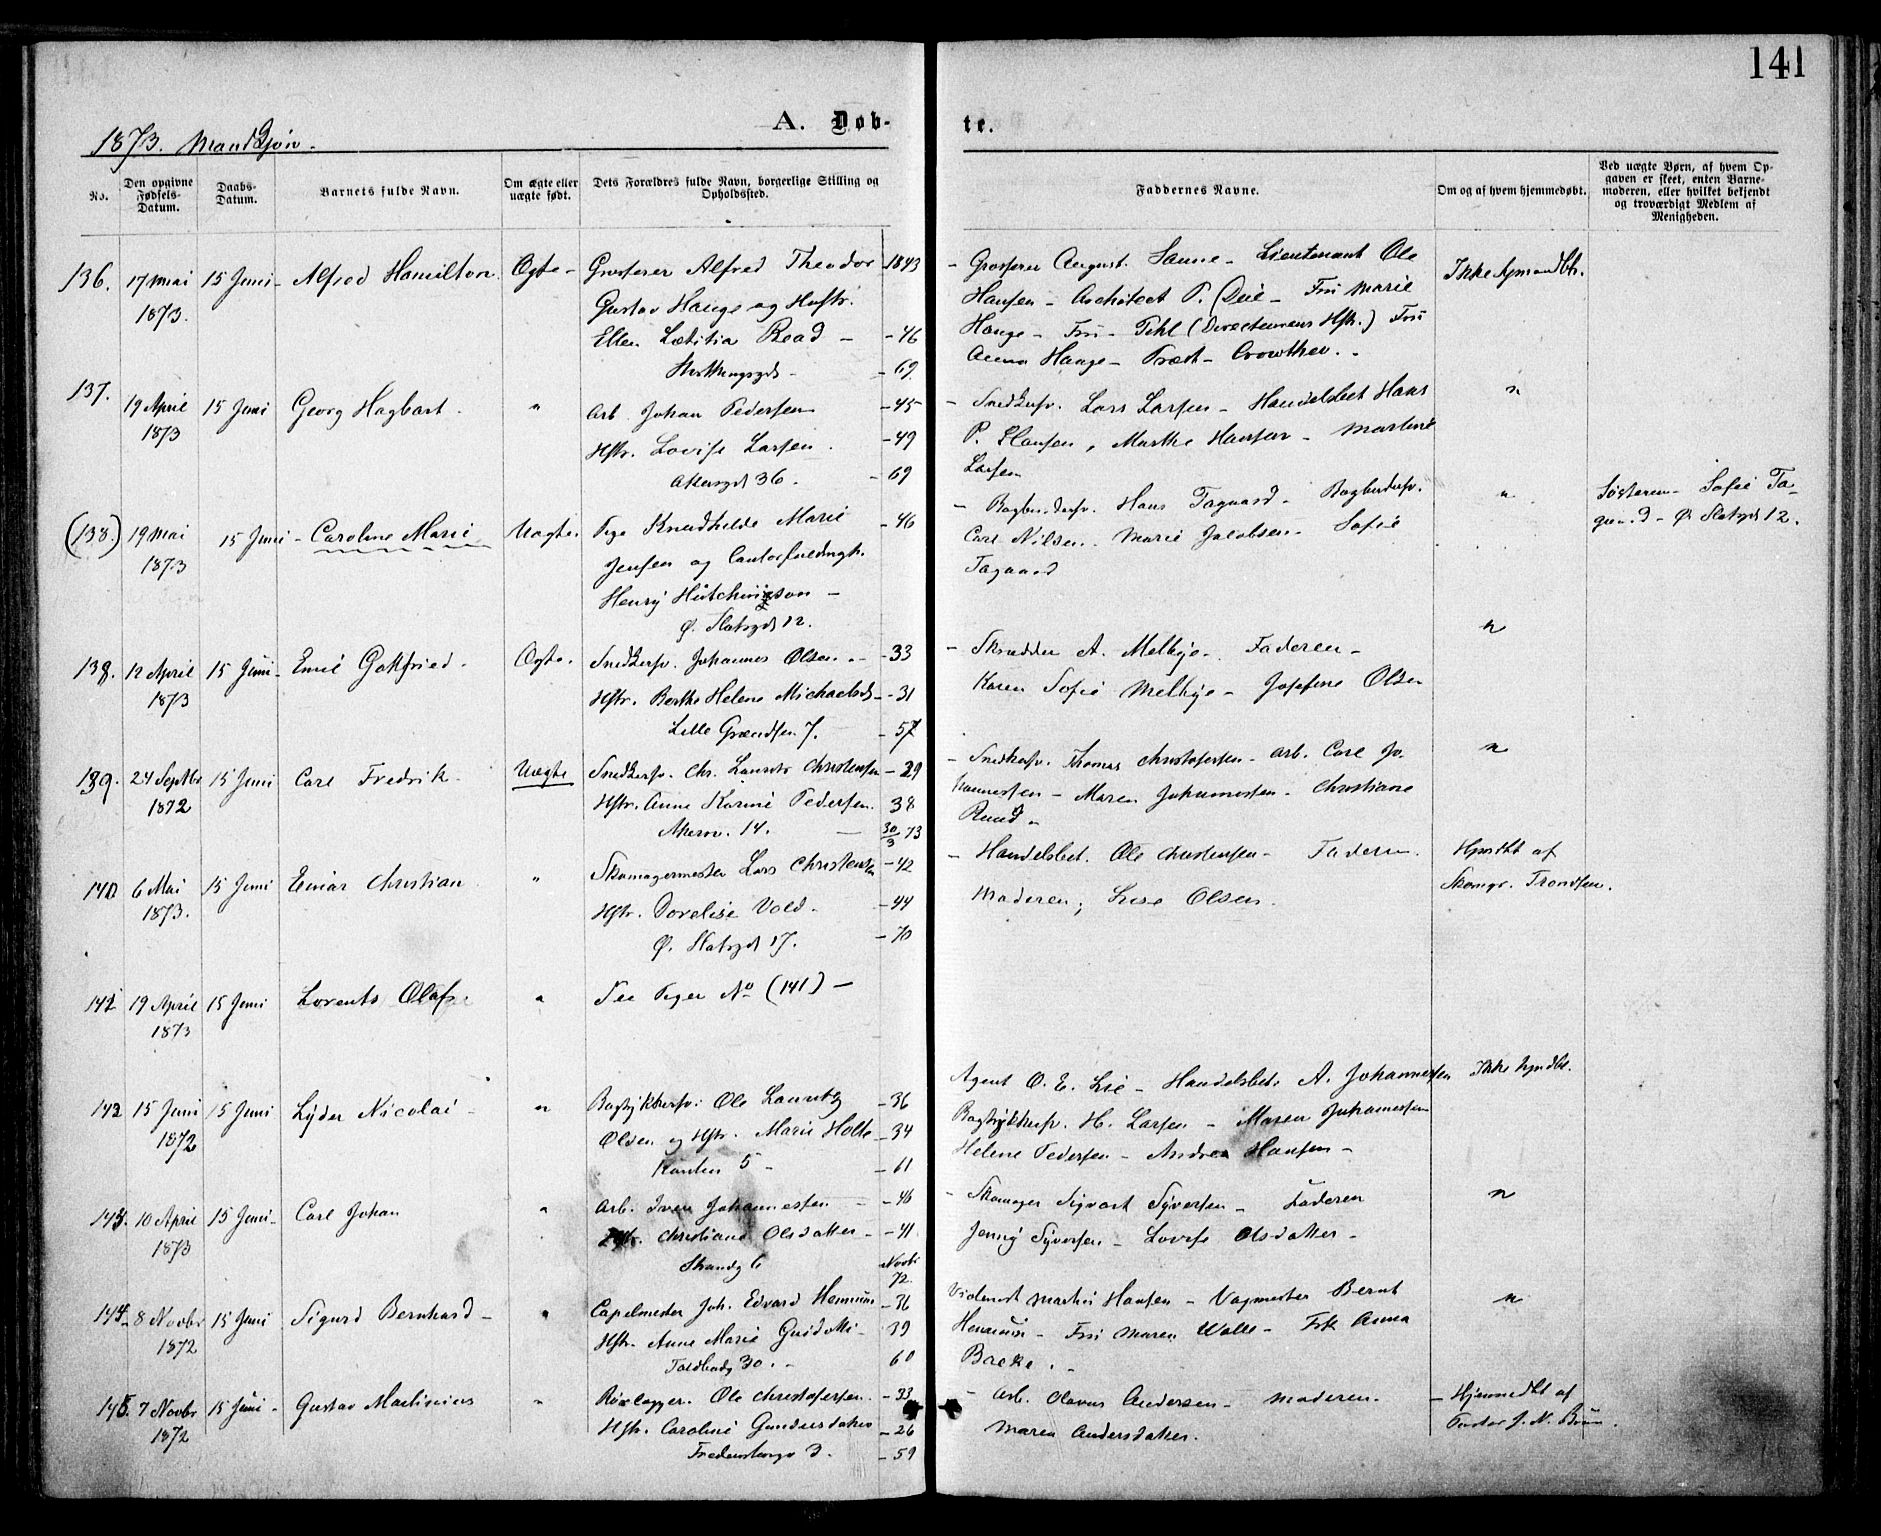 141
A. Døb-
te.
1873. Mandkjøn.
No.
Den opgivne Fødsels-Datum.
Daabs-Datum.
Barnets fulde Navn.
Om ægte eller uægte født.
Dets Forældres fulde Navn, borgerlige Stilling og Opholdssted.
Faddernes Navne.
Om og af hvem hjemmedøbt.
Ved uægte Børn, af hvem Op-
gaven er skeet, enten Barne-
moderen, eller hvilket bekjendt
og troværdigt Medlem af
Menigheden.
136. 17 Mai 1873. 15 Juni - Alfred Hamilton. Ægte -
Grosserer Alfred Theodor 1843
Gustav Hauge og Hustr.
Ellen Lætitia Read - - 46
- 69.
- Grosserer August Sanne - Lieutenant Ole
Hansen - Architect P. Due - Fru Marie
Hauge - Fru Pihl (Directeurens Hstr.) Fru
Anna Hauge - Præst - Crowther. -
Ikke hjemdbt.
137. 19 April 1873 15 Juni Georg Hagbart. "
Arb. Johan Pedersen - 45
Hstr. Lovise Larsen. - 49
Akersgd 36. - 69
- Snedkersv. Lars Larsen - Handelsbet Hans
P. Hansen, Marthe Hansen - Martine
Larsen
"
(138.) 19 Mai 1873 15 Juni - Caroline Marie Uægte.
Pige Knudhilde Marie - 46
Jensen og
Henry Hutchinson -
Ø. Slotsgd 12.
- Bagbindersv. Hans Tagaard - Bagbindersv.
Carl Nilsen. Marie Jacobsen - Sofie
Tagaard
"
Søsteren - Sofie Ta-
gaard - Ø. Slotsgd 12.
138. 12 April 1873 15 Juni - Emil Gottfried. Ægte.
Snedkersv. Johannes Olsen. - - 33
Hstr. Berthe Helene Michaelsd - - 31
Lille Grændsen 7. - 57
- Skrædder A. Melbye - Faderen -
Karen Sofie Melbye - Josefine Olsen
"
139. 24 Septbr 1872 15 Juni Carl Fredrik. Uægte
Snedkersv. Chr. Laurits Christensen - 29
Hstr. Anne Karine Pedersen. 38
Akersv. 14. - 30/3 73
- Snedkersv. Thomas Christofersen - Arb. Carl Jo-
hannessen - Maren Johannessen - Christiane
Ruud -
"
140 6 Mai 1873. 15 Juni Einar Christian "
Skomagermester Lars Christensen - 42
Hstr. Dorelise Vold. - 44
Ø. Slotsgd 17. - 70
- Handelsbet. Ole Christensen - Faderen.
Moderen; Lise Olsen.
Hjmdbt af
Skomgr. Trondsen.
141 19 April 1873 15 Juni Lorents Olaf. "
See Piger No (141) -
142 15 Juni 1872 15 Juni Lyder Nicolai - "
Bogtrykkersv: Ole Lauritz - 36
Olsen og Hstr. Marie Holte - 34
5 - - 61
Agent O. E. Lie - Handelsbet: A. Johannessen
Bogtrykkersv. H. Larsen - Maren Johannessen
Helene Pedersen - Andrea Hansen -
Ikke hjmdbt.
143. 10 April 1873 15 Juni - Carl Johan "
Arb. Iver Johannessen - - 46
Hstr. Christiane Olsdatter - - 41
Strandg 6 Novbr 72.
- Skomager Sigvart Syversen - Faderen
Jenny Syversen - Lovise Olsdatter -
"
144 - 8 Novbr 1872 15 Juni Sigurd Bernhard - "
Capelmester Joh. Edvard Hennum - 36
Hstr. Anne Marie Guidotti - 39
Toldbodg 30. - 60
Martin Hansen - Vagmester Bernt
Hennum - Fru Maren Walle - Frk Anna
Bache. -
"
145. 7 Novbr 1872 15 Juni - Gustav Martinius "
Ole Christofersen. - 33
Hstr. Caroline Gundersdatter - 26
Fredensborgv 3. - 59
- Arb. Olavus Andersen - Moderen.
Maren Andersdatter.
- Hjemmedbt af
Pastor J. N. Bruun.